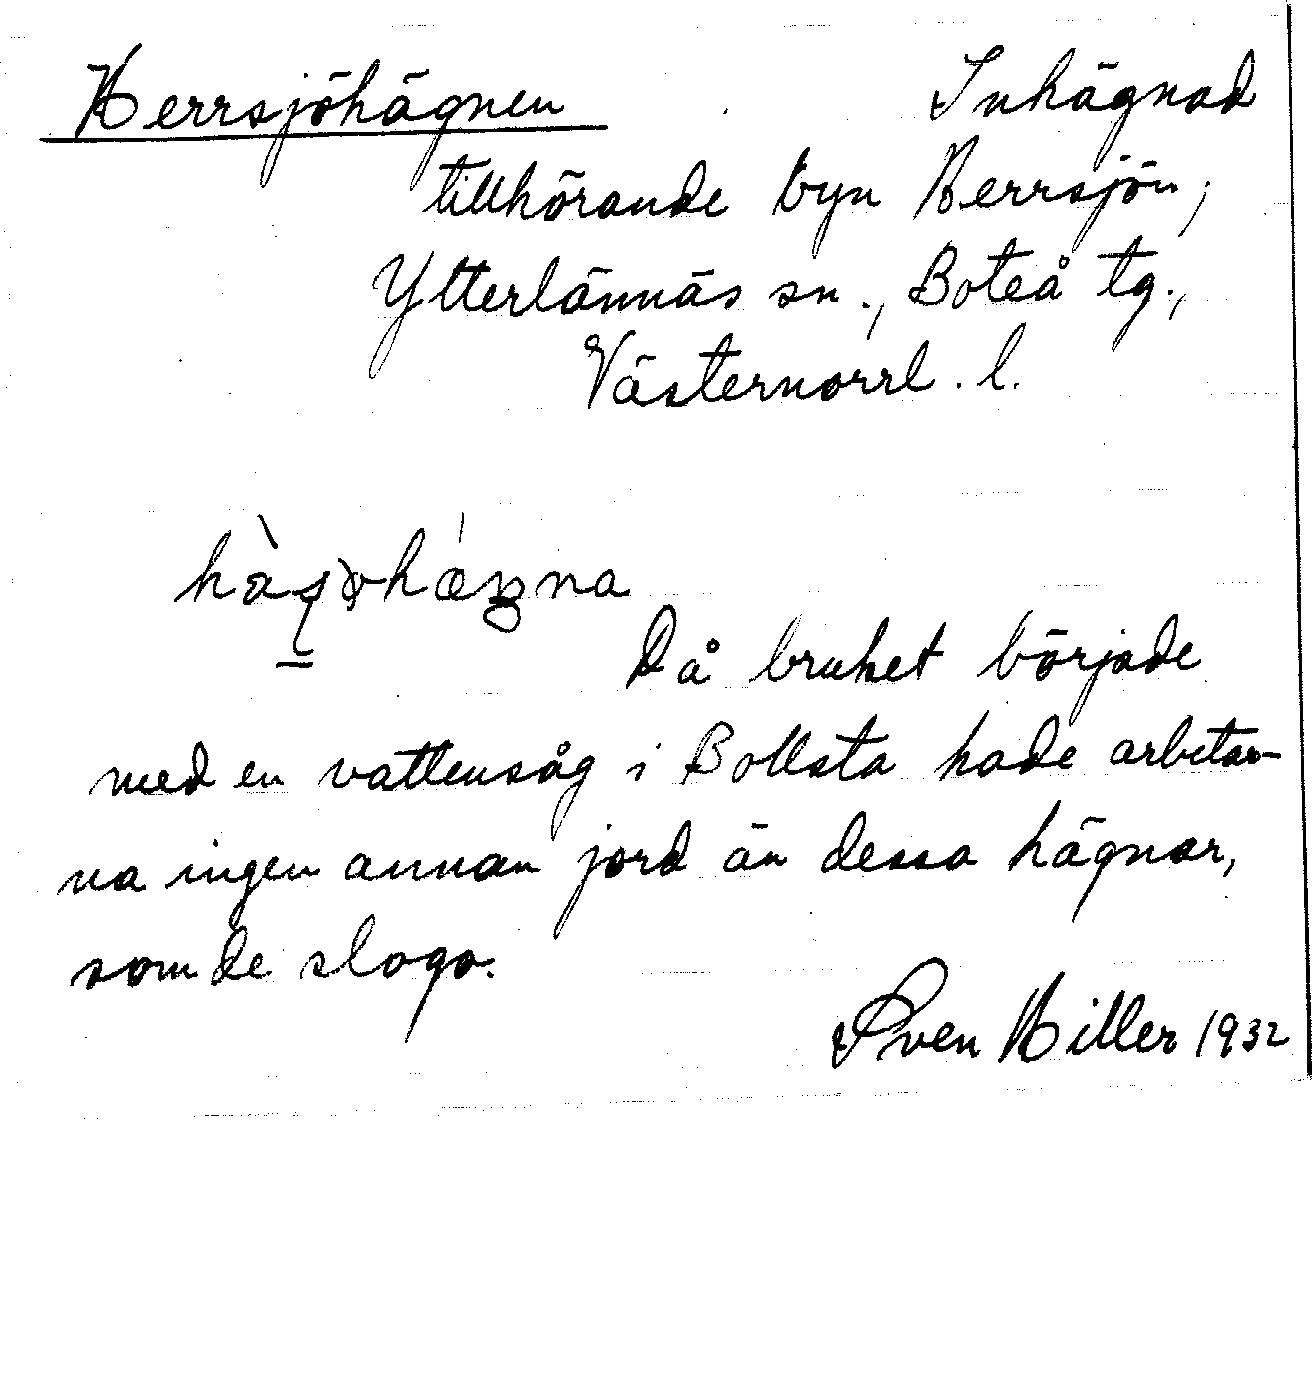 Herrsjöhägnen Inhägnad
tillhörande byn Herrsjön,
Ytterlännäs sn., Boteå tg.,
Västernorrl. l.
Då bruket började
med en vattensåg i Bollsta hade arbetar-
na ingen annan jord än dessa hägnar,
som de slogo.
Sven Hiller 1932